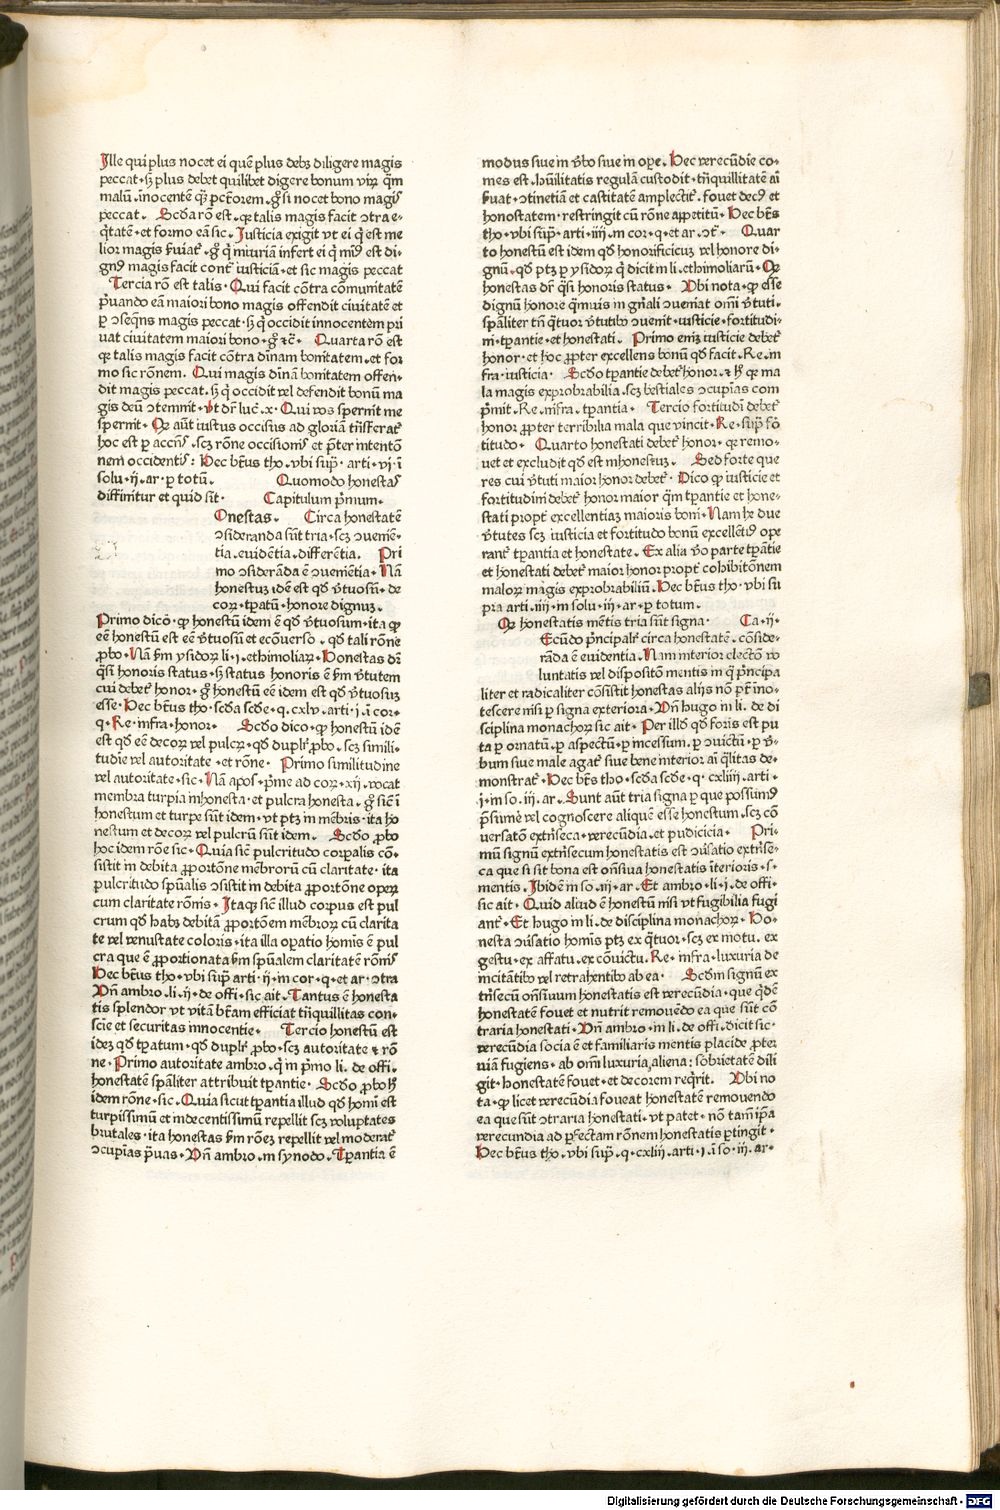 Ille qui plus nocet ei quē plus debꝫ diligere magis
peccat · sꝫ plus debet quilibet digere bonum virꝫ q̄m
malū · innocentē qꝫ pctōrem · gͦ si nocet bono magꝭ
peccat · Scḋa rō est · qꝛ talis magis facit ↄtra e-
q̇tatē · et formo eā sic · Justicia exigit vt ei q̇ est me
lior magis ẜuiatᷣ · gͦ q̇ iniuriā infert ei q̇ minꝰ est di-
gnꝰ magis facit contᷓ iusticiā · et sic magis peccat
Tercia rō est talis · Qui facit cōtra cōmunitatē
p̄uando eā maiori bono magis offendit ciuitatē et
ꝑ ↄseq̄ns magis peccat · sꝫ q̇ occidit innocentem pri
uat ciuitatem maiori bono · gͦ ⁊cͣ · Quarta rō est
qꝛ talis magis facit cōtra diuinam bonitatem · et for
mo sic rōnem · Qui magis diuinā bonitatem offen-
dit magis peccat · sꝫ q̇ occidit vel defendit bonū ma
gis deū ↄtemnit · vt dr̄ luc̄ · x · Qui vos spernit me
spernit · Qꝛ aūt iustus occisus ad gloriā trāsferatᷣ
hoc est ꝑ accn̄s · scꝫ rōne occisionis et p̄ter intentō
nem occidentis : Hec btūs tho · vbi supᷓ · arti · vi · i
solu · ij · ar · ꝑ totū · Quomodo honestas
diffinitur et quid sit · Capitulum p̄mum ·
Onestas · Circa honestatē
ↄsideranda sūt tria · scꝫ ↄueniē-
tia · euidētia · differētia · Pri
mo ↄsiderāda ē ↄuenientia · Nā
honestuꝫ idē est qḋ ṽtuosū · de
corꝫ · tꝑatū · honore dignuꝫ ·
Primo dicō · ꝙ honestū idem ē qḋ ṽtuosum · ita ꝙ
eē honestū est eē ṽtuosū et ecōuerso · qḋ tali rōne
ꝓbo · Nā ẜm ysidorꝫ li · x · ethimoliarꝫ · Honestas dr̄
q̄si honoris status · sꝫ status honoris ē ẜm ṽtutem
cui debetᷣ honor · gͦ honestū eē idem est qḋ ṽtuosuꝫ
esse · Hec btūs tho · scḋa scḋe · q · cxlv · arti · i · i cor ·
q · Re · infra · honor · Scḋo dico · ꝙ honestū idē
est qḋ eē decorꝫ vel pulcrꝫ · qḋ duplrᷣ ꝓbo · scꝫ simili-
tudie vel autoritate · et rōne · Primo similitudine
vel autoritate · sic · Nā apos · p̄me ad cor · xij · vocat
membra turpia inhonesta · et pulcra honesta · gͦ sic̄ i
honestum et turpe sūt idem · vt ptꝫ in mēbris · ita ho
nestum et decorꝫ vel pulcrū sūt idem · Scḋo ꝓbo
hoc idem rōne sic · Quia sic̄ pulcritudo corꝑalis cō-
sistit in debita ꝓportōne mēbrorū cū claritate · ita
pulcritudo spūalis ↄsistit in debita ꝓportōne operꝫ
cum claritate rōnis · Itaqꝫ sic̄ illud corpus est pul
crum qḋ habꝫ debitā ꝓportōem mēbrorꝫ cū clarita
te vel venustate coloris · ita illa oꝑatio homis ē pul
cra que ē ꝓportionata ẜm spūalem claritatē rōnis
Hec btūs tho · vbi supᷓ arti · ij · in cor · q · et ar · ↄtra
Vn̄ ambro · li · ij · de offi · sic ait · Tantus ē honesta
tis splendor vt vitā btām efficiat trāquillitas con-
scīe et securitas innocentie · Tercio honestū est
ideꝫ qḋ tꝑatum · qḋ duplrᷣ ꝓbo · scꝫ autoritate ⁊ rō
ne · Primo autoritate ambro · q̇ in p̄mo li · de offi ·
honestatē spāliter attribuit tꝑantie · Scḋo ꝓbo h
idem rōne · sic · Quia sicut tꝑantia illud qḋ homi est
turpissimū et indecentissimū repellit scꝫ voluptates
brutales · ita honestas ẜm rōeꝫ repellit vel moderatᷣ
ↄcupīas p̄uas · Vn̄ ambro · in synodo · Tꝑantia ē
modus siue in ṽbo siue in oꝑe · Hec verecūdie co-
mes est · hūilitatis regulā custodit · trāquillitatē ai
ẜuat · ↄtinētiā et castitatē amplectitᷣ · fouet decꝰ et
honostatem · restringit cū rōne appetitū · Hec btūs
tho · vbi supᷓ · arti · iiij · in cor · q · et ar · ↄtᷓ · Quar
to honestū est idem qḋ honorificū vel honore di-
gnū · qḋ ptꝫ ꝑ ysidorꝫ q̇ dicit in li · ethimoliarū · Qꝛ
honestas dr̄ q̄si honoris status · Vbi nota · ꝙ esse
dignū honore q̄muis in gn̄ali ↄueniat omī ṽtuti ·
spāliter tn̄ q̇tuor ṽtutibꝰ ↄuenit · iusticie · fortitudi-
ni · tꝑantie · et honestati · Primo eniꝫ iusticie debetᷣ
honor · et hoc ꝓpter excellens bonū qḋ facit · Re · in
fra · iusticia · Scḋo tꝑantie debetᷣ honor · ⁊ h qꝛ ma
la magis exprobrabilia · scꝫ bestiales ↄcupīas com
p̄mit · Re · infra · tꝑantia · Tercio fortitudini debetᷣ
honor ꝓpter terribilia mala que vincit · Re · supᷓ fo
titudo · Quarto honestati debetᷣ honor · qꝛ remo-
uet et excludit qḋ est inhonestuꝫ · Sed forte que
res cui ṽtuti maior honor debetᷣ · Dico ꝙ iusticie et
fortitudini debetᷣ honor maior q̄m tꝑantie et hone-
stati propt̄ excellentiaꝫ maioris boni · Nam he due
ṽtutes scꝫ iusticia et fortitudo bonū excellētiꝰ ope
rantᷣ tꝑantia et honestate · Ex alia ṽo parte tꝑātie
et honestati debetᷣ maior honor propt̄ cohibitōnem
malorꝫ magis exprobrabiliū · Hec btūs tho · vbi su
pra arti · iiij · in solu · iij · ar · ꝑ totum ·
Qꝛ honestatis mētis tria sūt signa · Ca · ij ·
Ecūdo p̄ncipalrᷣ circa honestatē · cōside-
rāda ē euidentia · Nam interior electō vo
luntatis vel dispositō mentis in q̇ p̄ncipa
liter et radicaliter cōsistit honestas alijs nō pt̄ ino-
tescere nisi ꝑ signa exteriora · Vn̄ hugo in li · de di
sciplina monachorꝫ sic ait · Per illḋ qḋ foris est pu
ta ꝑ ornatū · ꝑ aspectū · ꝑ incessum · ꝑ ↄuictū · ꝑ ṽ-
bum siue male agatᷣ siue bene interior ai q̄litas de-
monstratᷣ · Hec btūs tho · scḋa scḋe · q · cxliiij · arti ·
i · in so · iij · ar · Sunt aūt tria signa ꝑ que possumꝰ
p̄sumē vel cognoscere aliquē esse honestum · scꝫ cō
versatō extrīseca · verecūdia · et pudicicia · Pri-
mū signū extrīsecum honestatis est ↄu̇satio extrīse-
ca que si sit bona est on̄siua honestatis īterioris · s ·
mentis · Ibidē in so · iij · ar · Et ambro · li · i · de offi-
sic ait · Quid aliud ē honestū nisi vt fugibilia fugi
antᷣ · Et hugo in li · de disciplina monachorꝫ · Ho-
nesta ↄu̇satio homis ptꝫ ex q̇tuor · scꝫ ex motu · ex
gestu · ex affatu · ex cōuictu · Re · infra · luxuria de
incitātibꝰ vel retrahentibꝰ ab ea · Scḋm signū ex
trīsecū on̄siuum honestatis est verecūdia · que q̇dē
honestatē fouet et nutrit remouēdo ea que sūt cō
traria honestati · Vn̄ ambro · in li · de offi · dicit sic ·
verecūdia socia ē et familiaris mentis placide ꝓter
uiā fugiens · ab omī luxuria aliena : sobrietatē dili
git · honestatē fouet · et decorem req̇rit · Vbi no
ta · ꝙ licet verecūdia foueat honestatē remouendo
ea que sūt ↄtraria honestati · vt patet · nō tamē ip̄a
verecundia ad ꝑfectam rōnem honestatis ꝑtingit ·
Hec btūs tho · vbi supᷓ · q · cxliiij · arti · i · i so · iij · ar ·
Digitalisierung gefördert durch die Deutsche Forschungsgemeinschaft - DFG